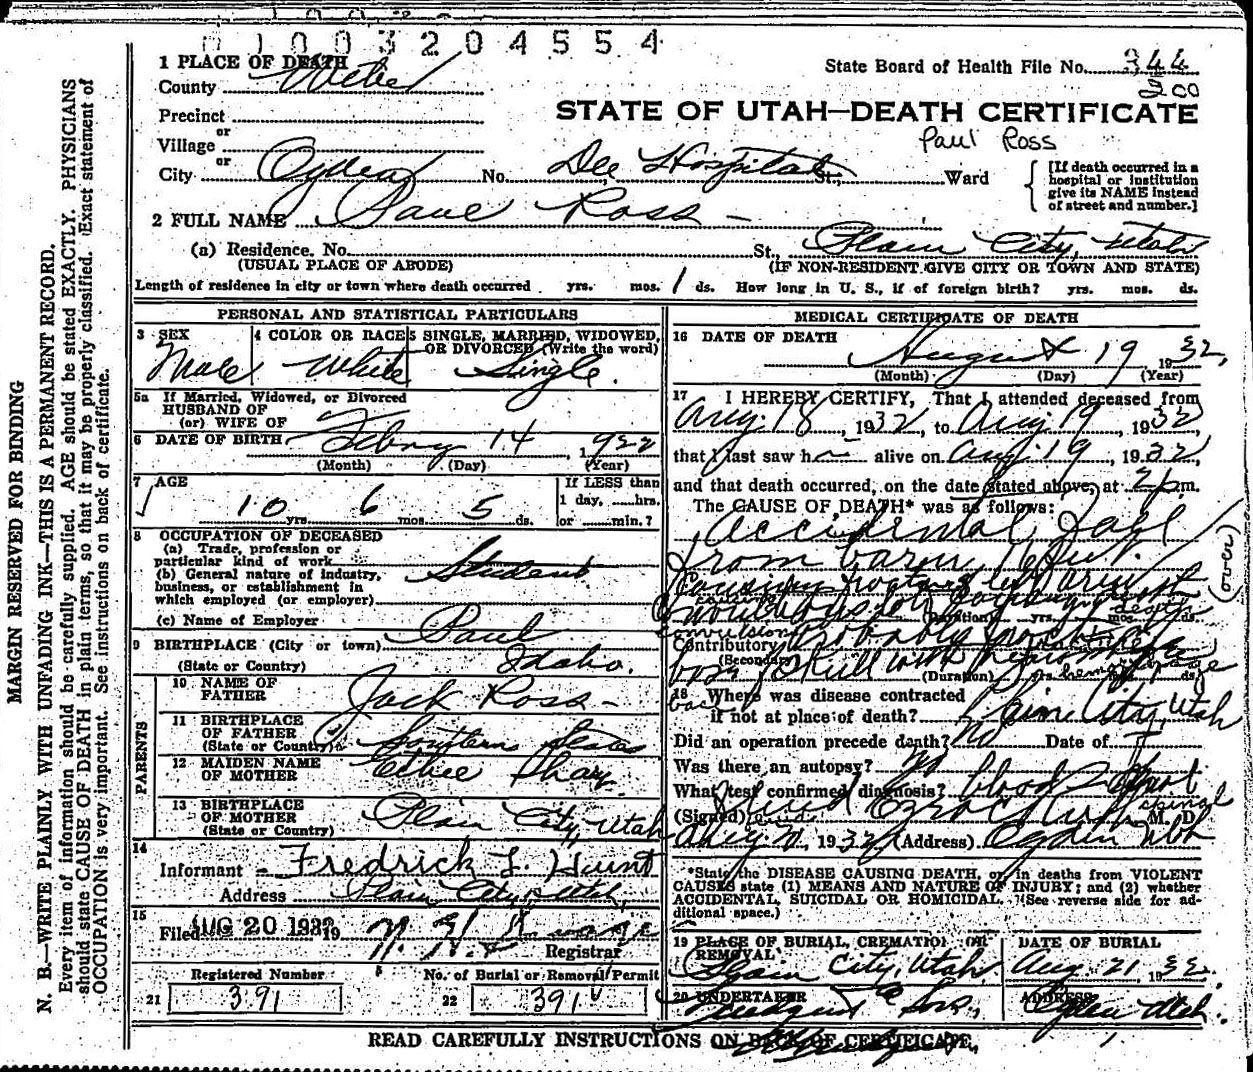 0 1 0 0 3 2 0 4 5 5 4
State Board of Health File No. 344
200
STATE OF UTAH—DEATH CERTIFICATE
Paul Ross
1 PLACE OF DEATH
County Weber
Precinct
or
Village
or
City Ogden No. Dee Hospital St., Ward
[If death occurred in a hospital or institution give its NAME instead of street and number.]
2 FULL NAME Paul Ross
(a) Residence. No. St., Plain City, Utah
(USUAL PLACE OF ABODE) (IF NON-RESIDENT GIVE CITY OR TOWN AND STATE)
Length of residence in city or town where death occurred yrs. mos. 1 ds. How long in U. S., if of foreign birth? yrs. mos. ds.
PERSONAL AND STATISTICAL PARTICULARS
3 SEX 4 COLOR OR RACE 5 SINGLE, MARRIED, WIDOWED, OR DIVORCED (Write the word)
Male White Single.
5a If Married, Widowed, or Divorced
HUSBAND OF
(or) WIFE OF
6 DATE OF BIRTH Febry 14 1922
(Month) (Day) (Year)
7 AGE If LESS than
1 day, hrs.
10 yrs. 6 mos. 5 ds. or min.?
8 OCCUPATION OF DECEASED
(a) Trade, profession or
particular kind of work Student
(b) General nature of industry,
business, or establishment in
which employed (or employer)
(c) Name of Employer
9 BIRTHPLACE (City or town) Paul
(State or Country) Idaho.
PARENTS
10 NAME OF FATHER Jack Ross
11 BIRTHPLACE OF FATHER
(State or Country) Southern States
12 MAIDEN NAME OF MOTHER Ethel Sharp
13 BIRTHPLACE OF MOTHER
(State or Country) Plain City, Utah
14
Informant Fredrick L. Hunt
Address Plain City, Utah
15
Filed AUG 20 1932 19
Registrar
Registered Number No. of Burial or Removal Permit
21 391 22 391
MEDICAL CERTIFICATE OF DEATH
16 DATE OF DEATH
August 19 1932,
(Month) (Day) (Year)
17 I HEREBY CERTIFY, That I attended deceased from
Aug. 18, 1932, to Aug 19, 1932,
that I last saw h alive on Aug. 19, 1932,
and that death occurred, on the date stated above, at 2 p.m.
The CAUSE OF DEATH* was as follows:
Accidental fall
from barn
(Duration) yrs. mos. ds.
death
convulsions Probably
Contributory
(Secondary) skull with
(Duration) yrs. mos. ds.
18 Where was disease contracted
if not at place of death? Plain City, Utah
Did an operation precede death? No Date of
Was there an autopsy? No
What test confirmed diagnosis? blood
spinal
fluid
(Signed) M. D.
Aug. , 1932 (Address) Ogden Utah
*State the DISEASE CAUSING DEATH, or, in deaths from VIOLENT
CAUSES state (1) MEANS AND NATURE OF INJURY; and (2) whether
ACCIDENTAL, SUICIDAL OR HOMICIDAL. (See reverse side for ad-
ditional space.)
19 PLACE OF BURIAL, CREMATION OR REMOVAL DATE OF BURIAL
Plain City, Utah. Aug. 21, 1932.
20 UNDERTAKER ADDRESS
Ogden Utah.
READ CAREFULLY INSTRUCTIONS ON BACK OF CERTIFICATE.
MARGIN RESERVED FOR BINDING
N. B.—WRITE PLAINLY WITH UNFADING INK—THIS IS A PERMANENT RECORD.
Every item of information should be carefully supplied. AGE should be stated EXACTLY. PHYSICIANS
should state CAUSE OF DEATH in plain terms, so that it may be properly classified. Exact statement of
OCCUPATION is very important. See instructions on back of certificate.